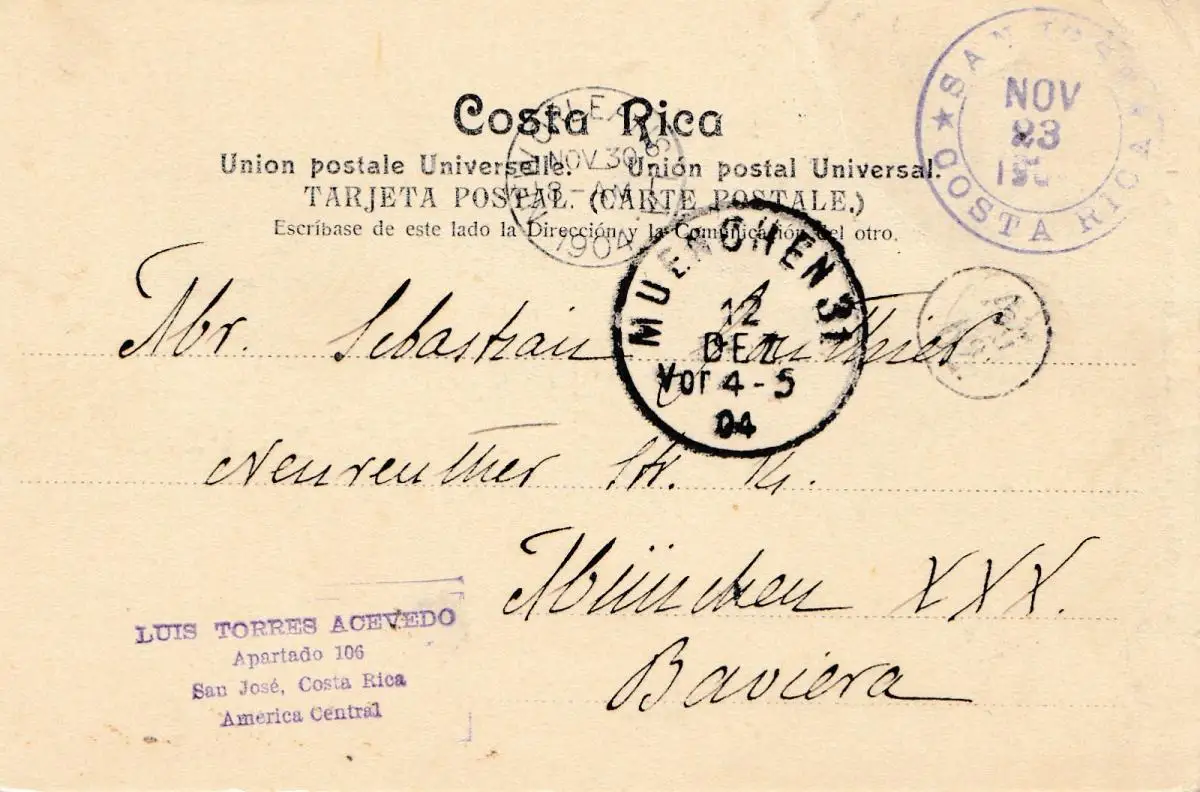 Costa Rica
Union postale Universelle. Unión postal Universal.
TARJETA POSTAL. (CARTE POSTALE.)
Escríbase de este lado la Dirección y la Comunicación del otro.
SAN JOSE
NOV
23
COSTA RICA
NEW ORLEANS
NOV 30
8 - AM
1904
MUENCHEN 31
12
DEZ
Vor 4-5
04
Mr. Sebastian
Neureuther Str.
München XXX.
Baviera
LUIS TORRES ACEVEDO
Apartado 106
San José, Costa Rica
América Central